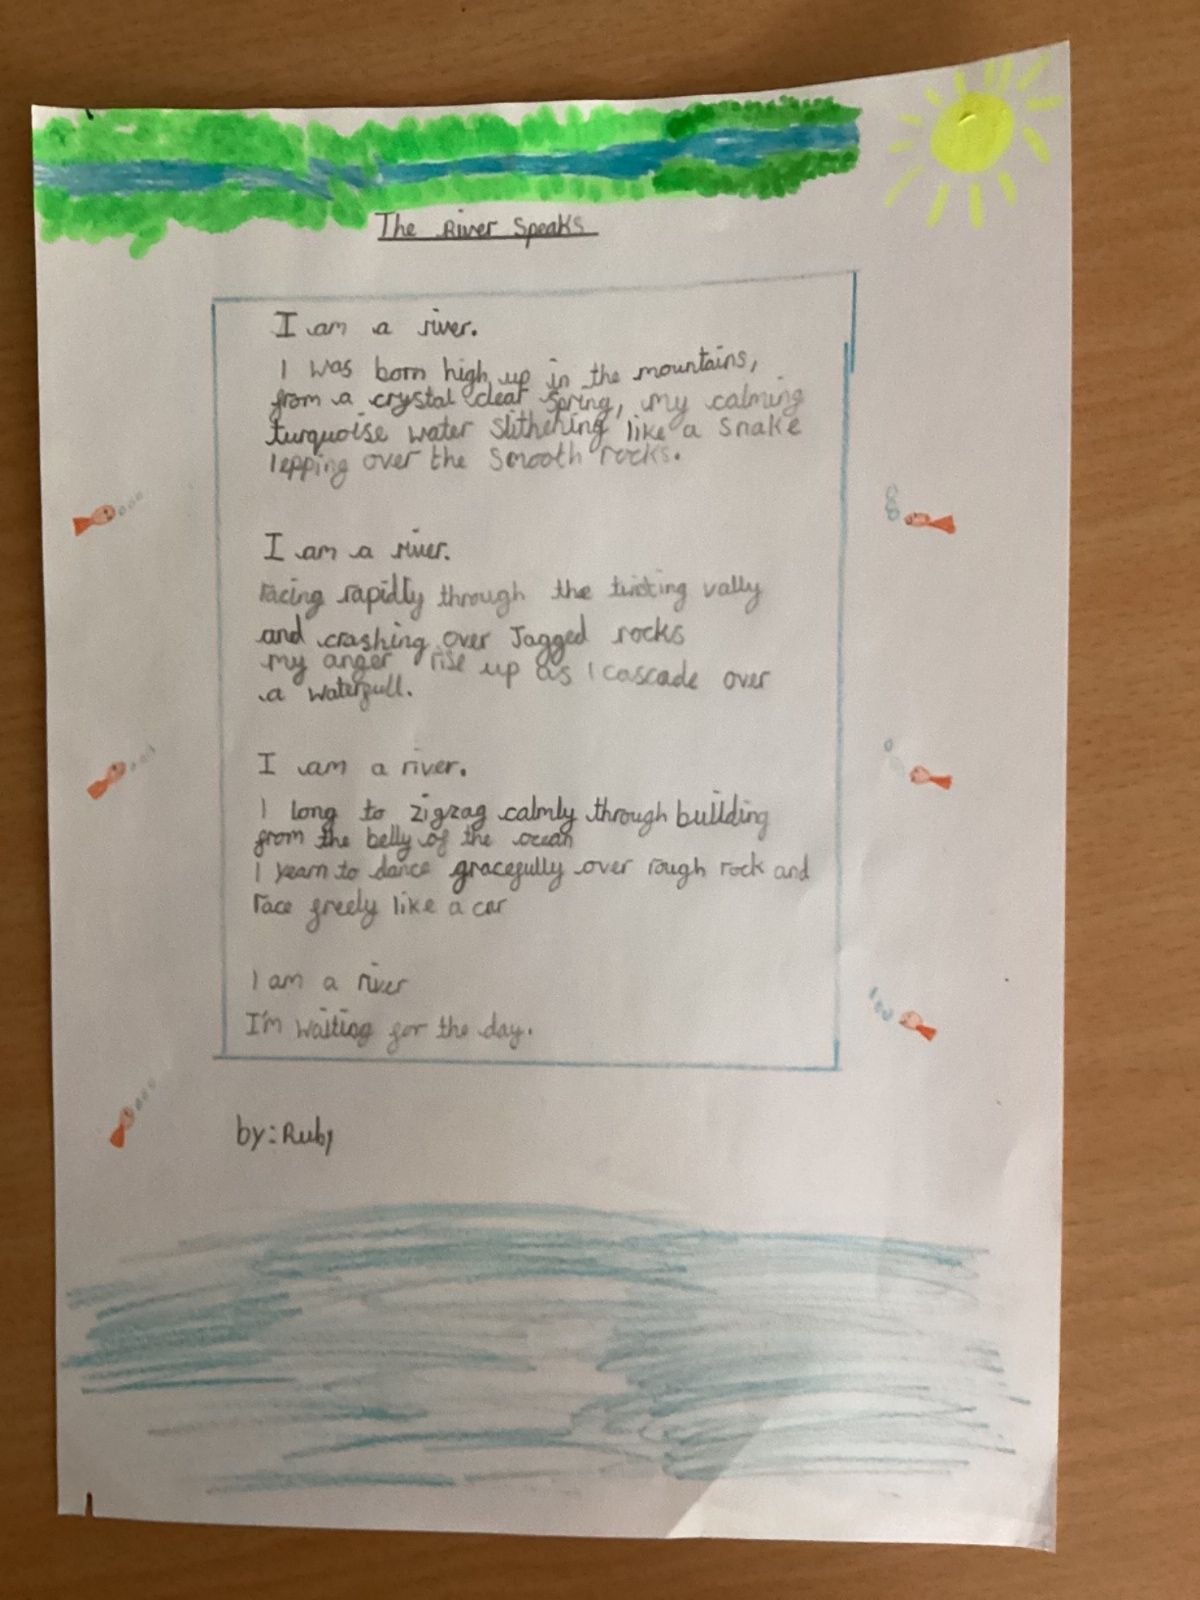 The River Speaks
I am a river.
I was born high up in the mountains,
from a crystal clear spring, my calming
turquoise water slithering like a snake
lepping over the smooth rocks.
I am a river.
racing rapidly through the twisting vally
and crashing over Jagged rocks
my anger rise up as I cascade over
a waterfull.
I am a river.
I long to zigzag calmly through building
from the belly of the ocean
I yearn to dance gracefully over rough rock and
race freely like a car
I am a river
I'm waiting for the day.
by: Ruby